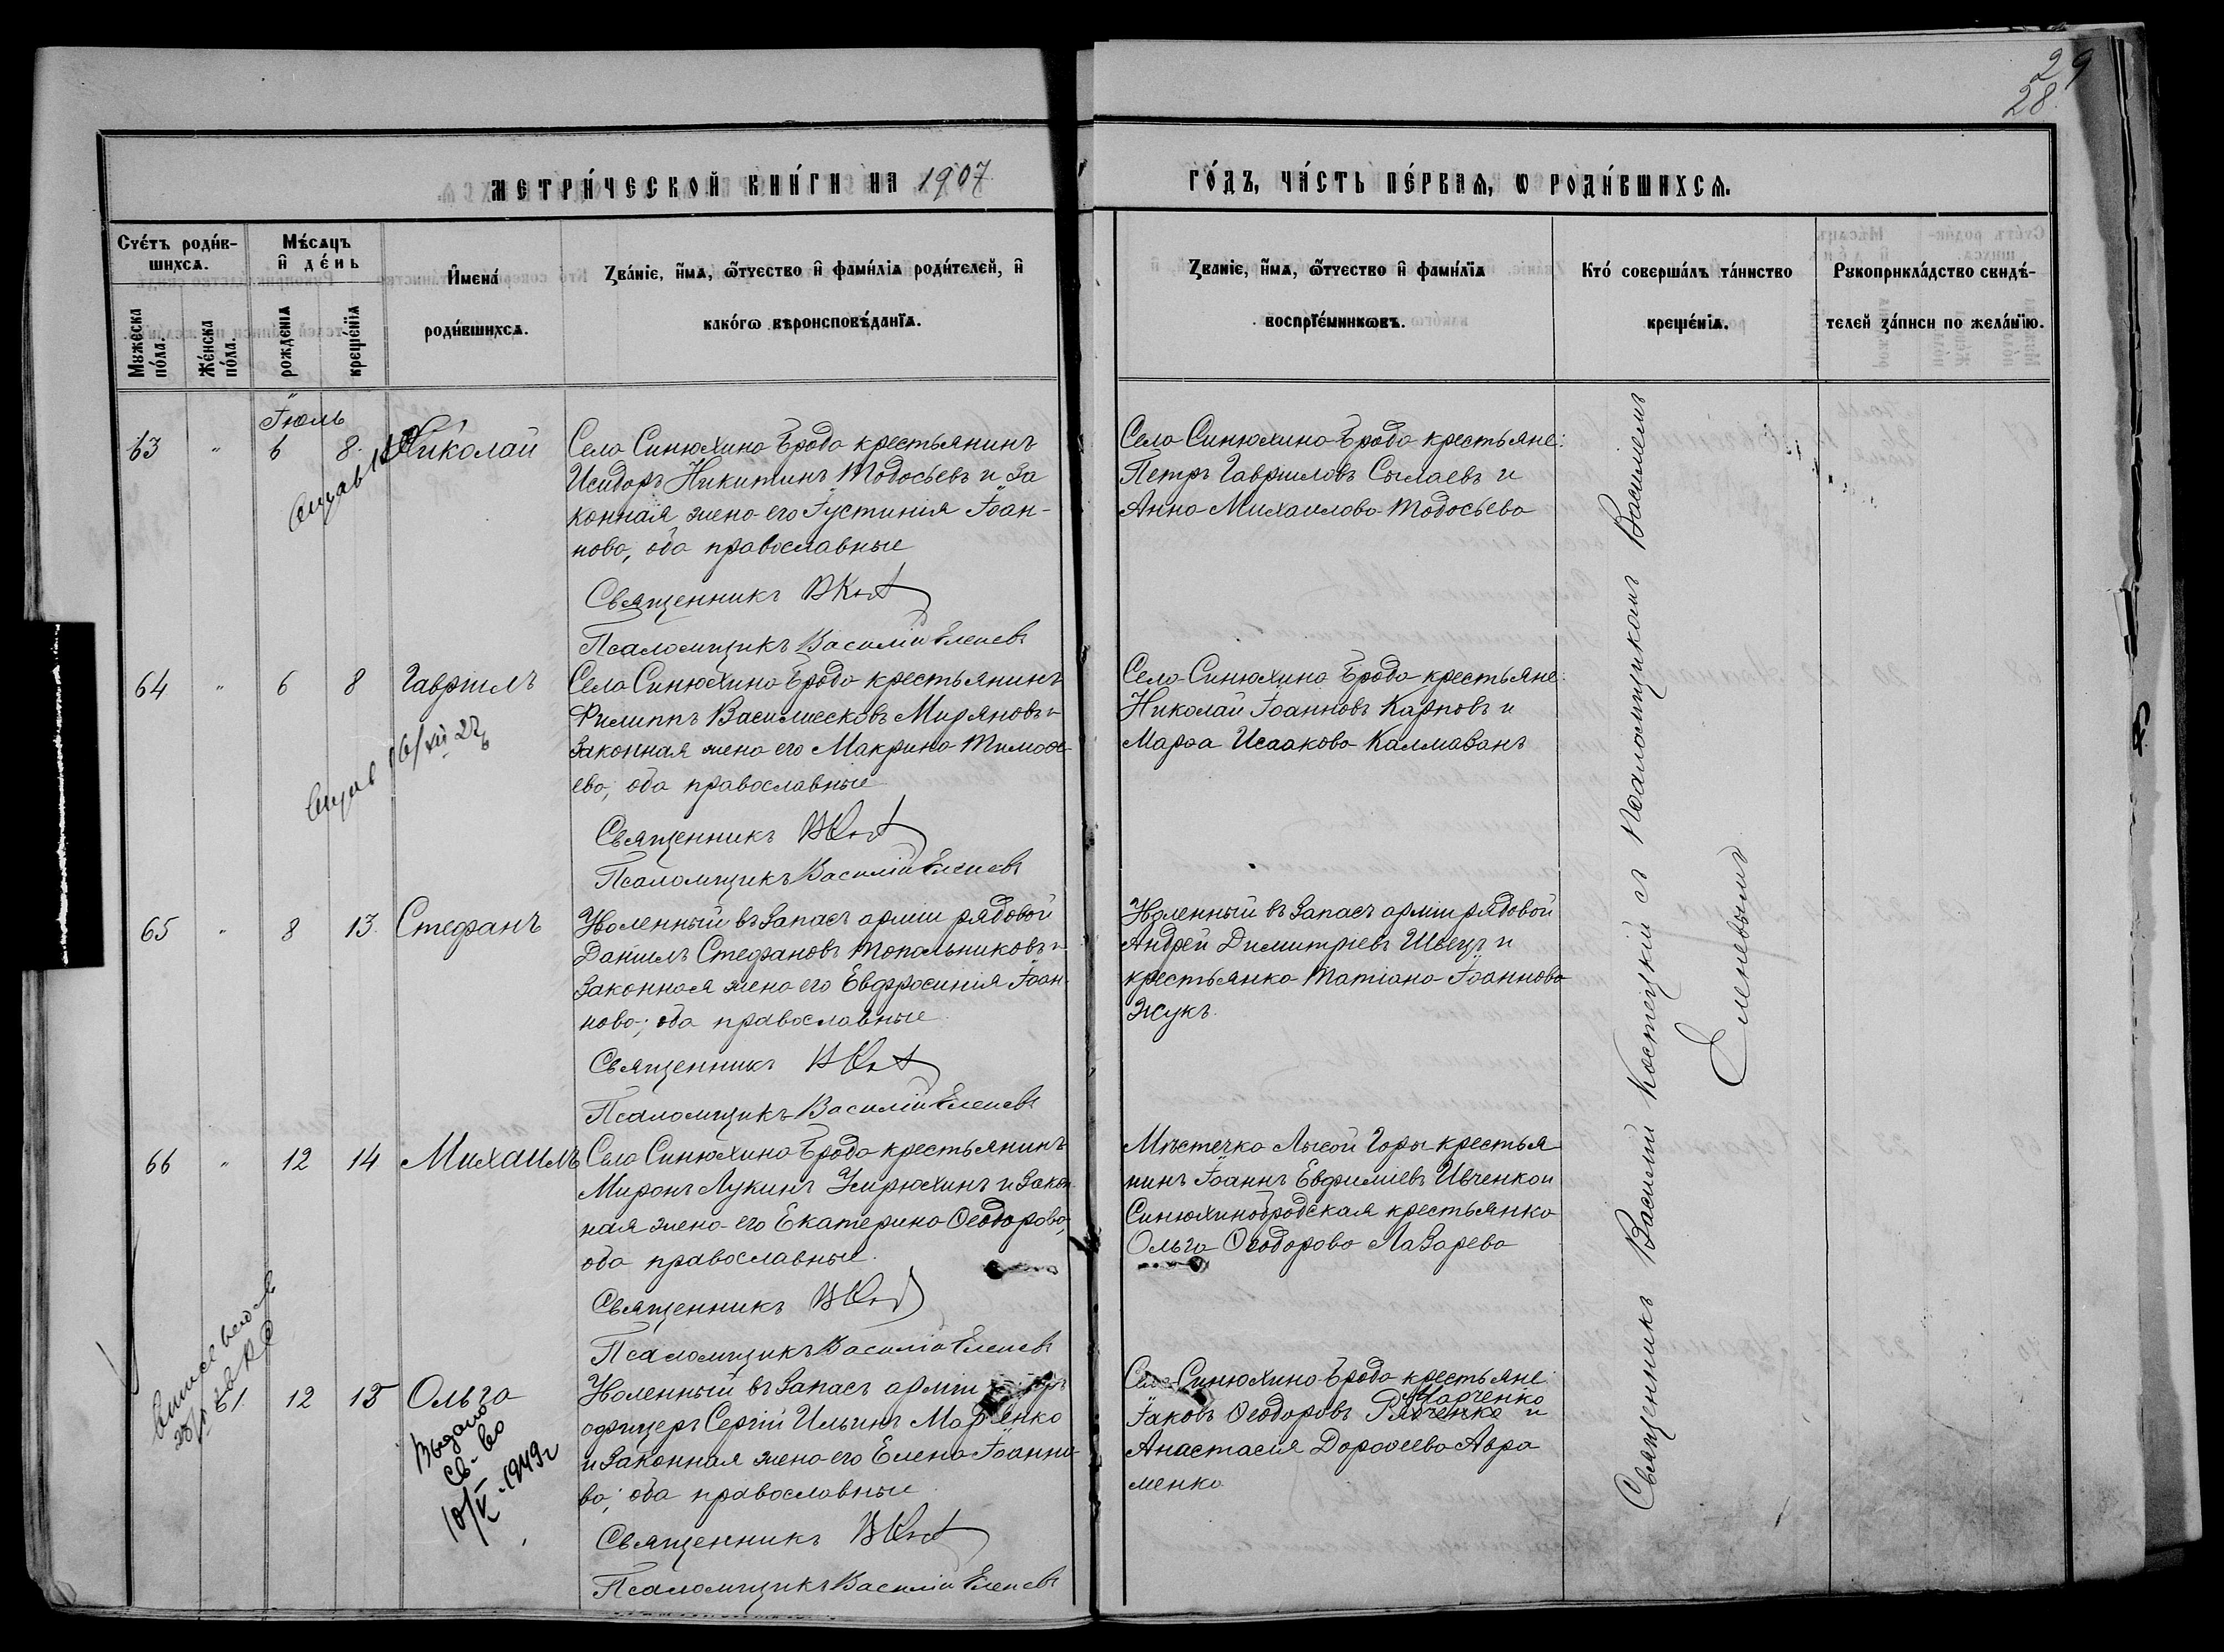 29
28.
МЕТРИ́ЧЕСКОЙ КНИ́ГИ НА 1907
ГО́ДЪ, ЧА́СТЬ ПЕ́РВАѦ, Ѡ РОДИ́ВШИХСѦ.
Счє́тъ роди́в-
шихсѧ.
Мужеска по́ла.
Же́нска по́ла.
Мѣ́сѧцъ
и҆ дє́нь
рождєнїѧ
крещє́нїѧ
И҆мєна́
роди́вшихсѧ.
Зва́нїе, и҆́мѧ, ѻ҆́тчество и҆ фами́лїѧ роди́телей, и҆
како́гѡ вѣроисповѣ́данїѧ.
Званїе, и҆́мѧ, ѻ҆́тчество и҆ фами́лїѧ
воспрїє́мникѡвъ.
Кто́ совершáлъ тáинство
крещє́нїѧ.
Рукоприклáдство свидѣ́-
телей зáписи по желáнїю.
Іюль
63 " 6 8. Николай
Села Синюхина Брода крестьянинъ
Исидоръ Никитинъ Тодосьевъ и за
конная жена его Іустинія Іоан-
нова, оба православные
Священникъ
Псаломщикъ Василій Еленевъ
Села Синюхина Брода крестьяне:
Петръ Гавриловъ Сылаевъ и
Анна Михаилова Тодосьева
64 " 6 8 Гавриилъ
Села Синюхина Брода крестьянинъ
Филиппъ Василисковъ Миряновъ и
законная жена его Макрина Тимоѳе-
ева, оба православные
Священникъ
Псаломщикъ Василій Еленевъ
Села Синюхина Брода крестьяне:
Николай Іоанновъ Карповъ и
Марѳа Исаакова Калмазанъ
65 " 8 13. Стефанъ
Уволенный въ запасъ арміи рядовой
Даніилъ Стефановъ Топальниковъ и
законная жена его Евфросинія Іоан-
нова; оба православные
Священникъ
Псаломщикъ Василій Еленевъ
Уволенный въ запасъ арміи рядовой
Андрей Димитріевъ Швецъ и
крестьянка Татіана Іоаннова
Жукъ.
66 " 12 14 Михаилъ
Села Синюхина Брода крестьянинъ
Миронъ Лукинъ и закон
ная жена его Екатерина Ѳеодорова,
оба православные.
Священникъ
Псаломщикъ Василій Еленевъ
Мѣстечка Лысой Горы крестья
нинъ Іоаннъ Евфиміевъ Ивченко и
Синюхинобродская крестьянка
Ольга Ѳеодорова Лазарева
61. 12 15 Ольга
Выдано
св-во
10/V 1949г
Уволенный въ запасъ арміи
офицеръ Сергій Ильинъ Марченко
и законная жена его Елена Іоанно-
ва; оба православные
Священникъ
Псаломщикъ Василій Еленевъ
Села Синюхина Брода крестьяне:
Марченко
Іаковъ Ѳеодоровъ и
Анастасія Дороѳеева Авра
менко
Священникъ Василій Костецкій съ Псаломщикомъ Василіемъ
Еленевымъ